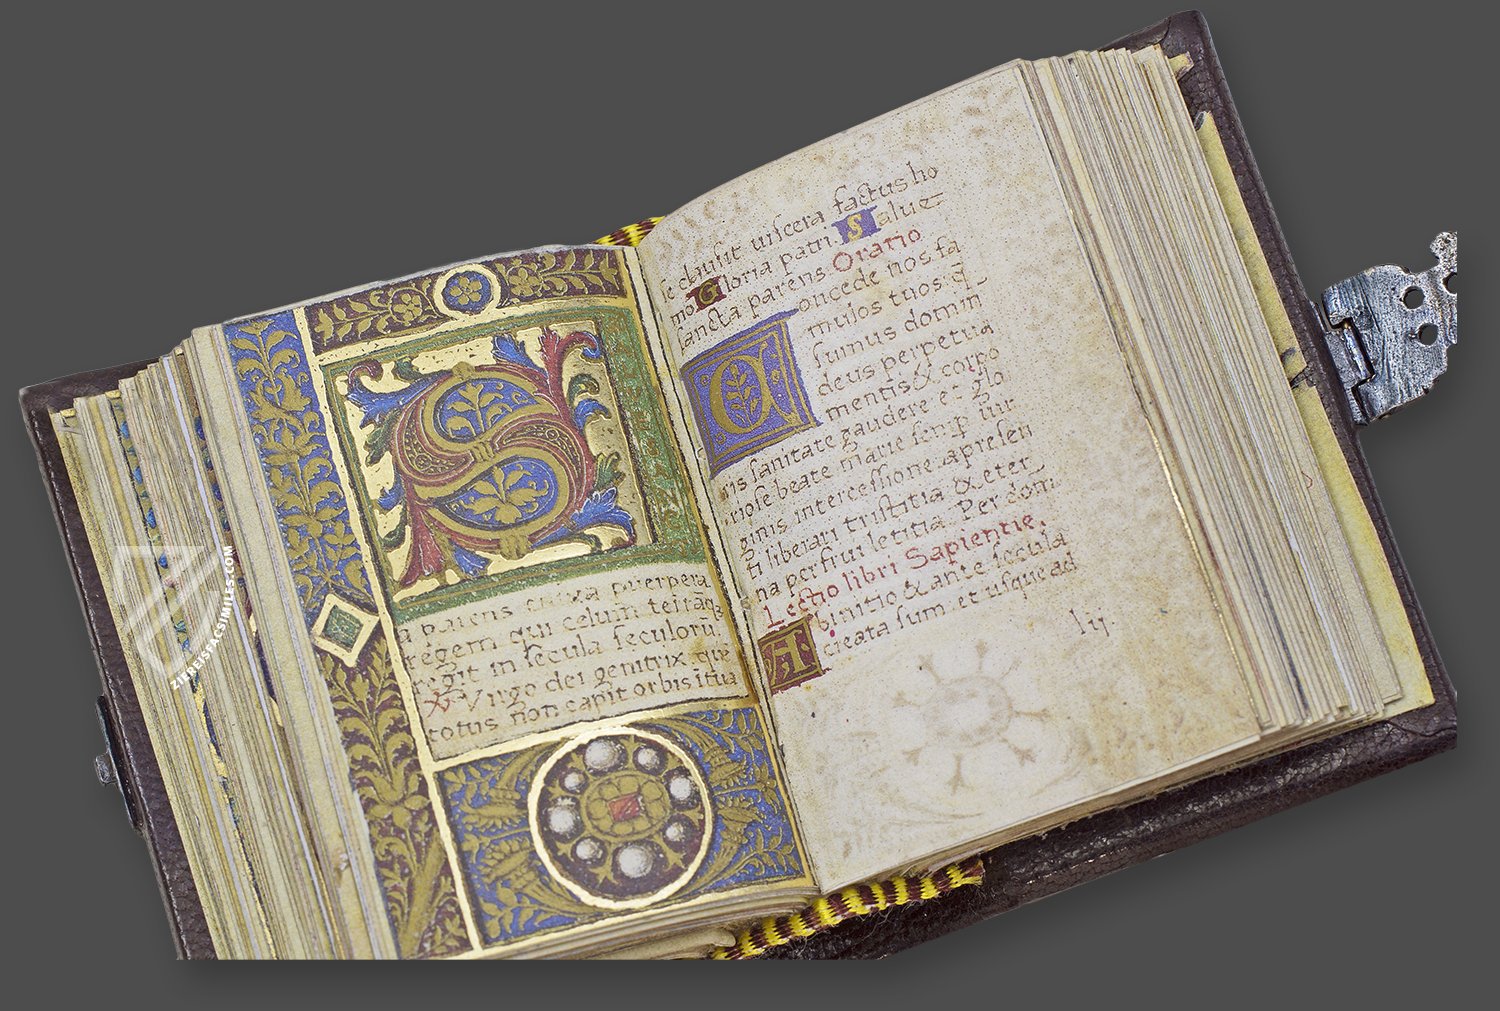 S
a parens enixa puerpera
regem qui celum terrāq̄
regit in secula seculorū.
℣. Virgo dei genitrix quē
totus non capit orbis i tua
se clausit viscera factus ho
mo. Gloria patri. Salue
sancta parens Oratio
Concede nos fa
mulos tuos q̄
sumus domin
deus perpetua
mentis & corpo
ris sanitate gaudere et glo
riose beate marie semp uir
ginis intercessione a presen
ti liberari tristitia & eter
na perfrui letitia. Per dom
Lectio libri Sapientie.
Ab initio & ante secula
creata sum et usque ad
lij.
ZIEREISFACSIMILES.COM